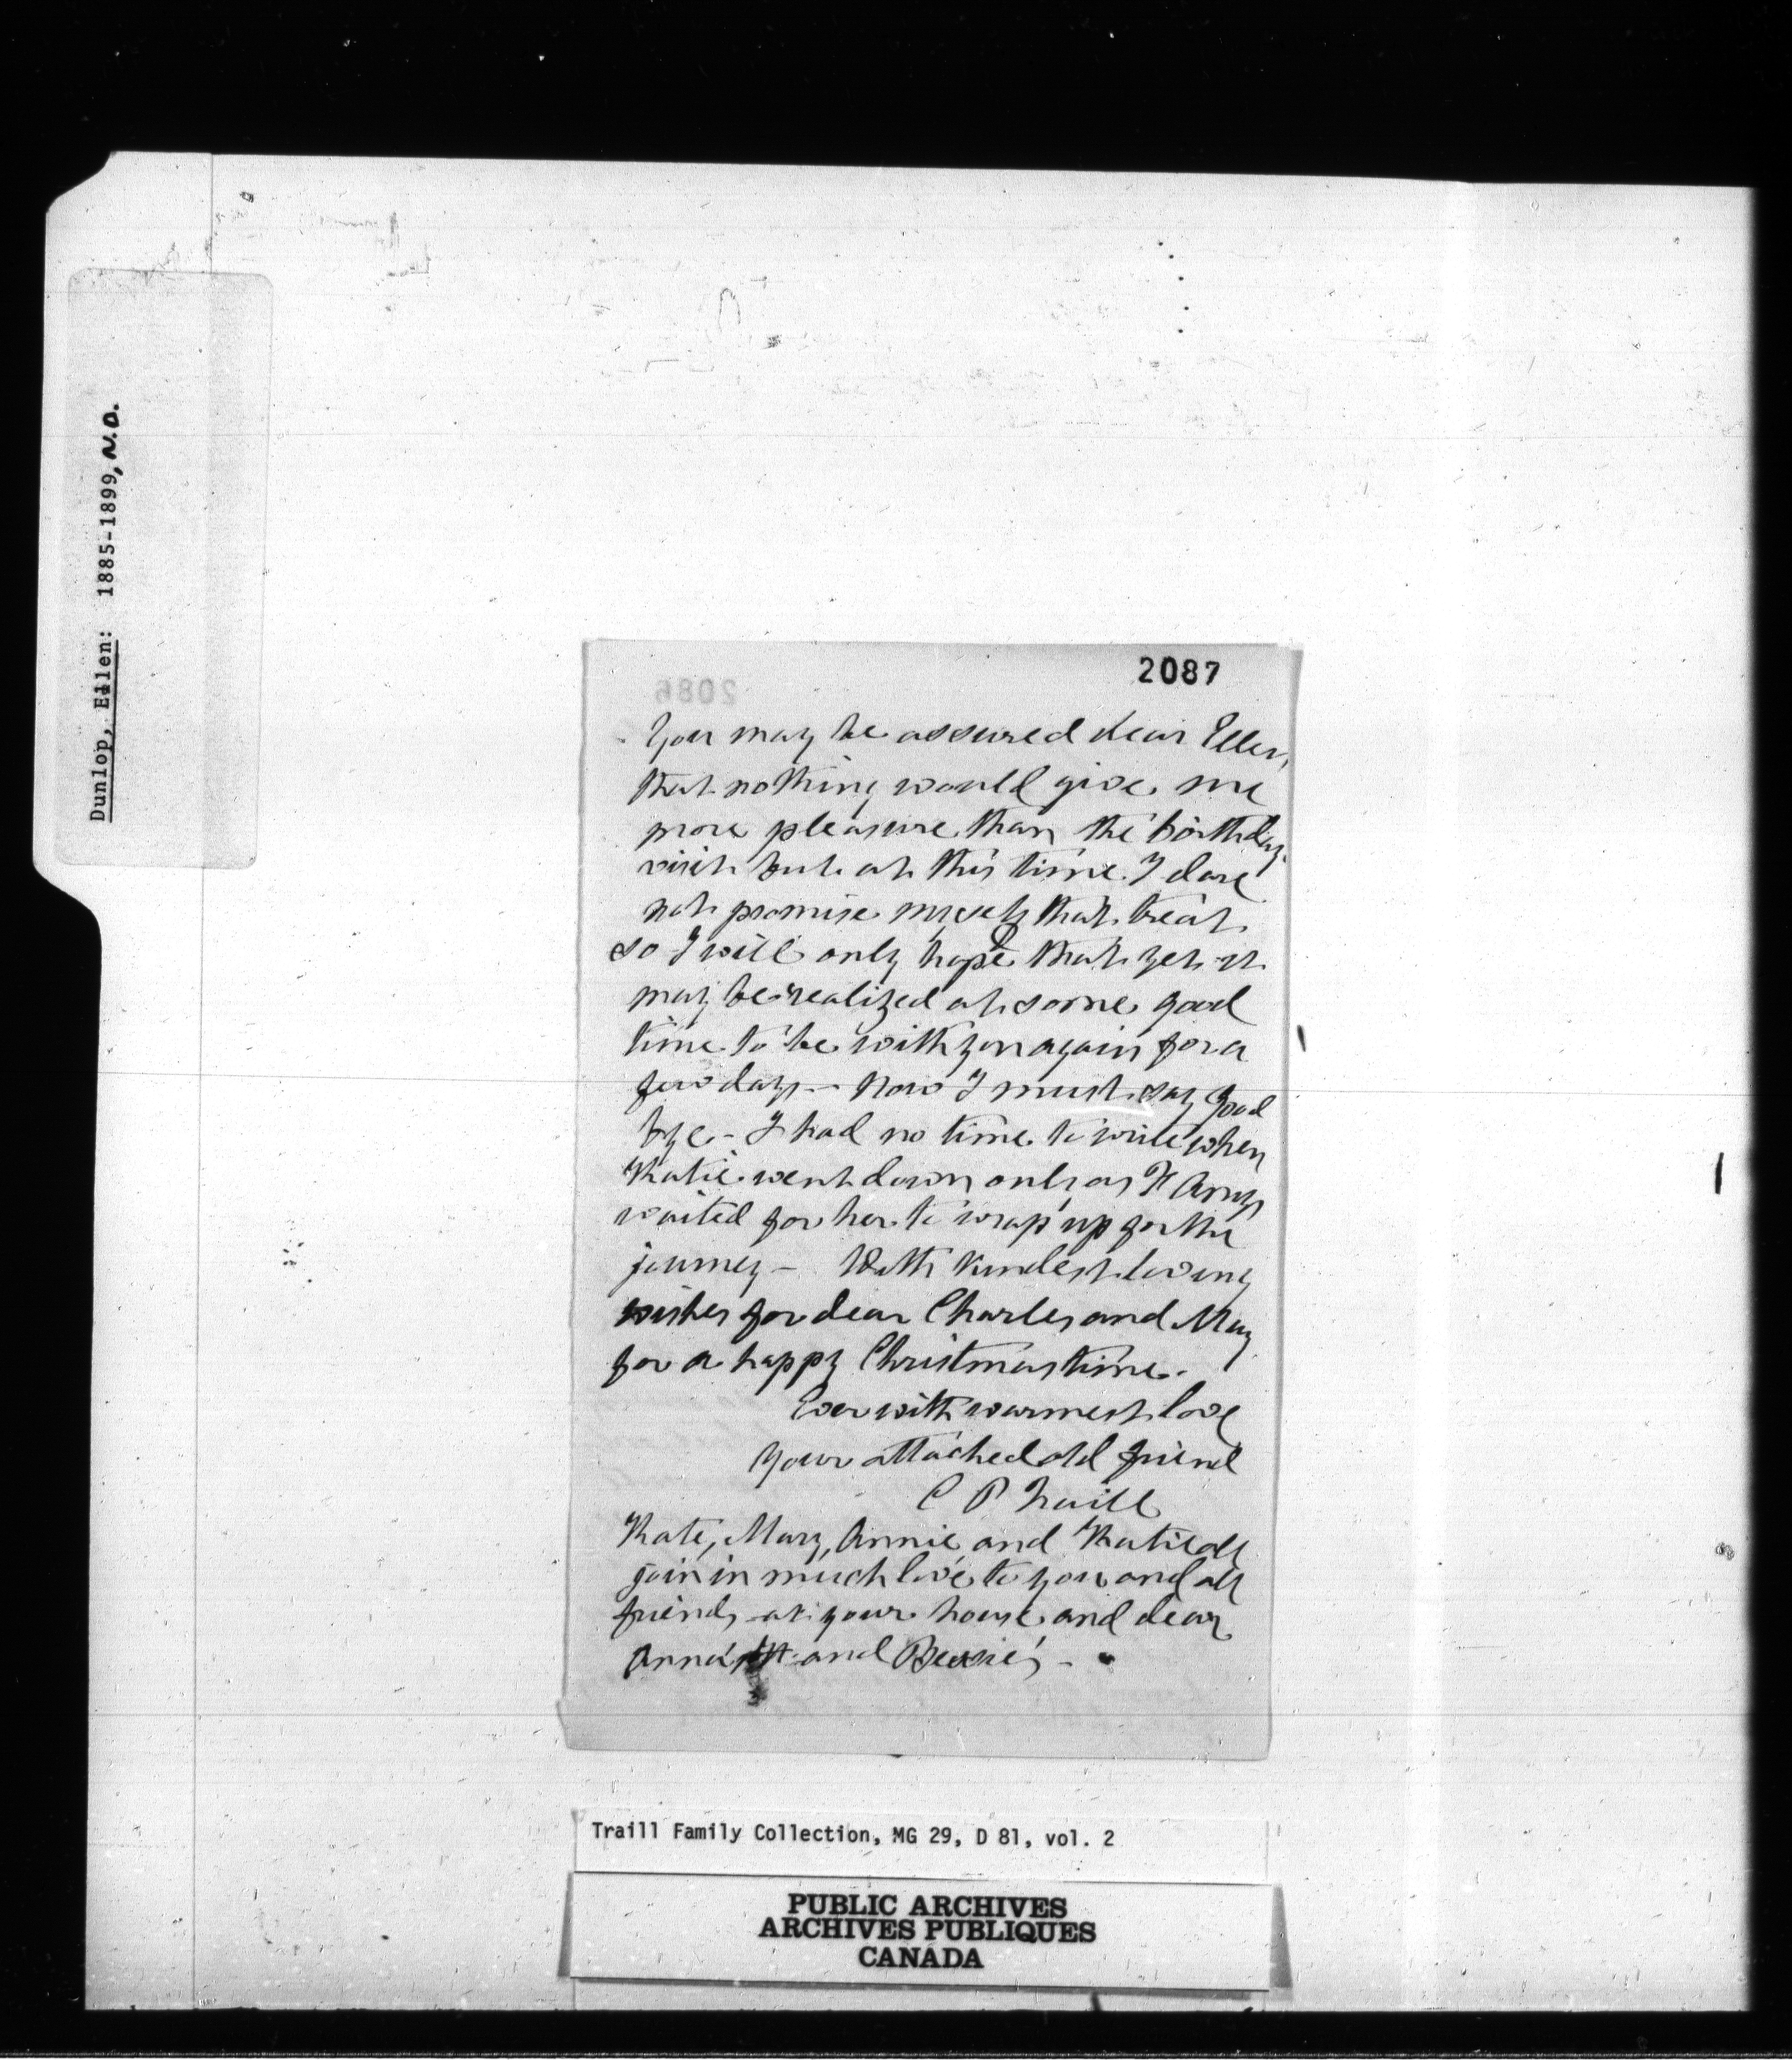 Dunlop, Ellen: 1885-1899, N.D.
2087
2086
You may be assured dear Ellen,
that nothing would give me
more pleasure than the birthday
visit but at this time I dare
not promise myself that treat
so I will only hope that yet it
may be realized at some good
time to be with you again for a
few days - now I must say good
bye - I had no time to write when
Katie went down only as H
waited for her to wrap up for the
journey - With kindest loving
wishes for dear Charles and May
for a happy Christmas time -
Ever with warmest love
your attached old friend
C P Traill
Kate, Mary, Annie and Katie all
join in much love to you and all
friends at your house and dear
Anna and Bessie's -
Traill Family Collection, MG 29, D 81, vol. 2
PUBLIC ARCHIVES
ARCHIVES PUBLIQUES
CANADA